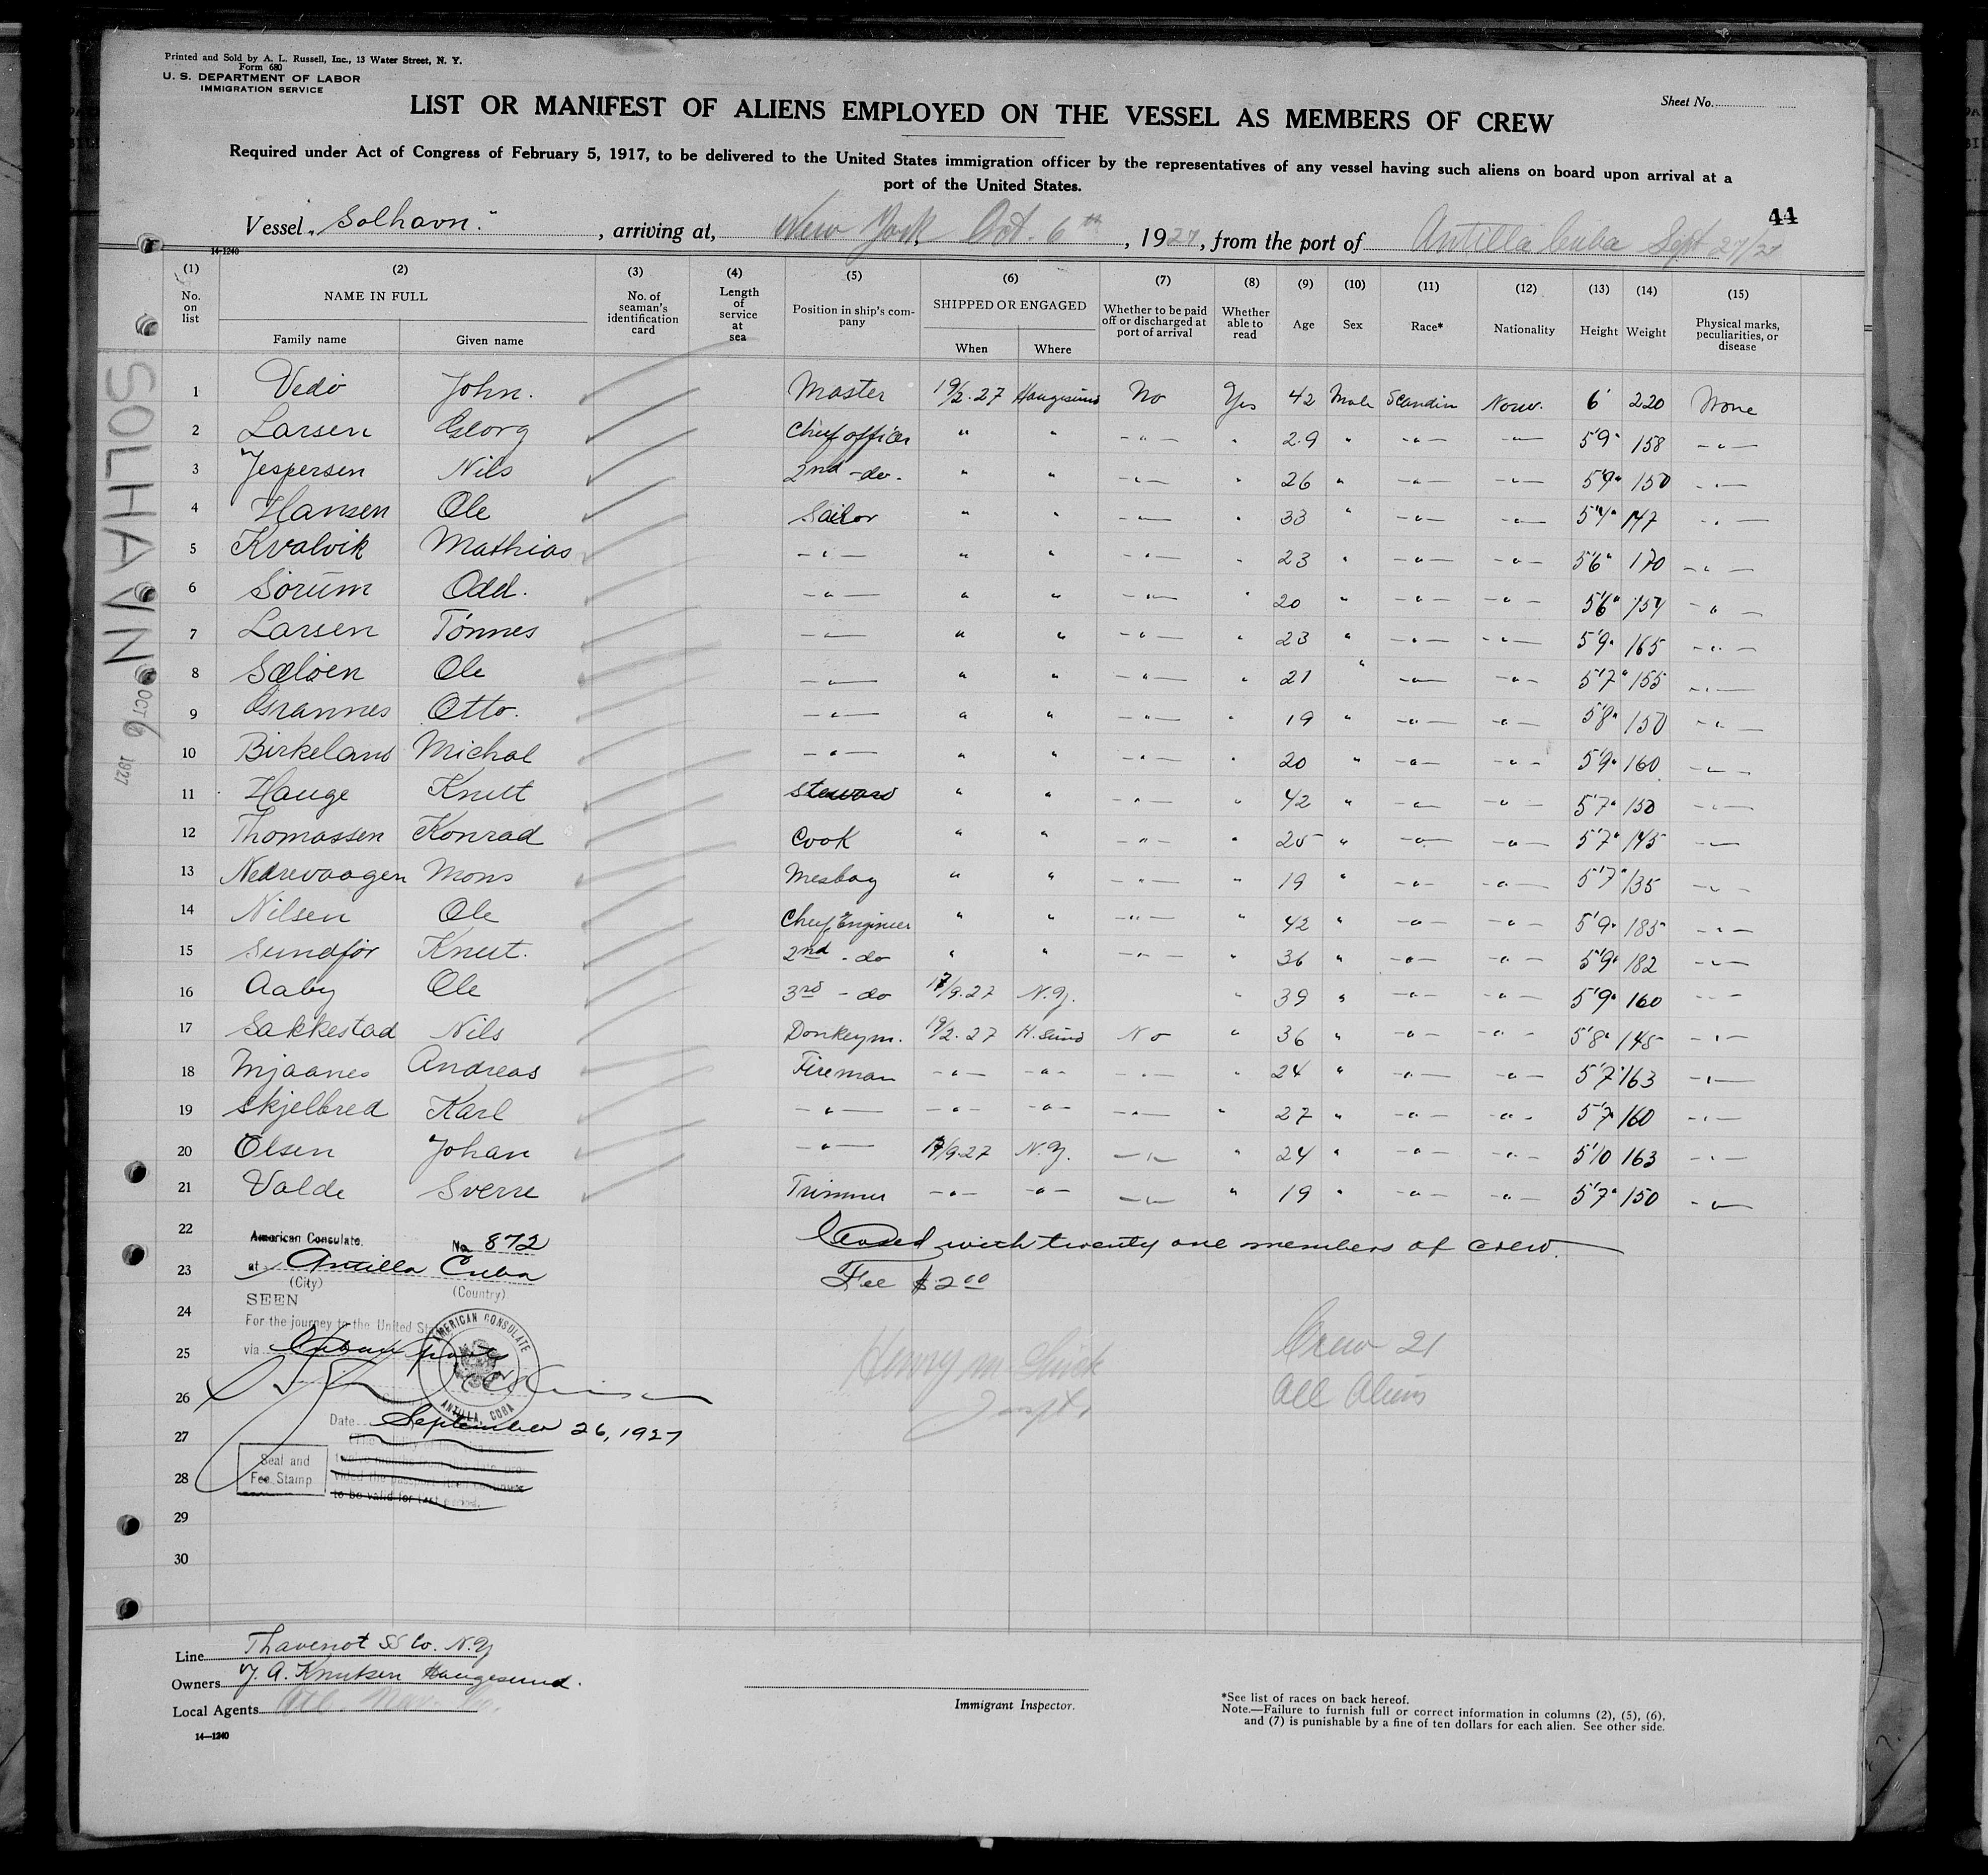 Printed and Sold by A. L. Russell, Inc., 13 Water Street, N. Y.
Form 680
U. S. DEPARTMENT OF LABOR
IMMIGRATION SERVICE
Sheet No.
LIST OR MANIFEST OF ALIENS EMPLOYED ON THE VESSEL AS MEMBERS OF CREW
Required under Act of Congress of February 5, 1917, to be delivered to the United States immigration officer by the representatives of any vessel having such aliens on board upon arrival at a
port of the United States.
44
Vessel "Solhavn." , arriving at, New York, Oct. 6th , 1927, from the port of Antilla Cuba Sept 27/27
14-1240
(1) (2) (3) (4) (5) (6) (7) (8) (9) (10) (11) (12) (13) (14) (15)
No. on list NAME IN FULL Family name Given name No. of seaman's identification card Length of service at sea Position in ship's company SHIPPED OR ENGAGED When Where Whether to be paid off or discharged at port of arrival Whether able to read Age Sex Race* Nationality Height Weight Physical marks, peculiarities, or disease
1 Vedö John. Master 19/2.27 Haugesund No Yes 42 Male Scandin Norw. 6' 220 None
2 Larsen Georg Chief officer " " -"- " 29 " -"- -"- 5'9" 158 -"-
3 Jespersen Nils 2nd -do- " " -"- " 26 " -"- -"- 5'9" 150 -"-
4 Hansen Ole Sailor " " -"- " 33 " -"- -"- 147 -"-
5 Kvalvik Mathias -"- " " -"- " 23 " -"- -"- 5'6" 170 -"-
6 Sörum Odd. -"- " " -"- " 20 " -"- -"- 5'6" -"-
7 Larsen Tönnes -"- " " -"- " 23 " -"- -"- 5'9" 165 -"-
8 Sælöen Ole -"- " " -"- " 21 " -"- -"- 5'7" 155 -"-
9 Grannes Otto. -"- " " -"- " 19 " -"- -"- 5'8" 150 -"-
10 Birkeland Michal -"- " " -"- " 20 " -"- -"- 5'9" 160 -"-
11 Hauge Knut Steward " " -"- " 42 " -"- -"- 5'7" 150 -"-
12 Thomassen Konrad Cook " " -"- " 25 " -"- -"- 5'7" 145 -"-
13 Nedrevaagen Mons Mesboy " " -"- " 19 " -"- -"- 5'7" 135 -"-
14 Nilsen Ole Chief Engineer " " -"- " 42 " -"- -"- 5'9" 185 -"-
15 Sundför Knut. 2nd - do " " -"- " 36 " -"- -"- 5'9" 182 -"-
16 Aaby Ole 3rd - do 17/9.27 N.Y. " 39 " -"- -"- 5'9" 160 -"-
17 Sakkestad Nils Donkeym. 19/2.27 H.sund No " 36 " -"- -"- 5'8" 145 -"-
18 Mjaanes Andreas Fireman -"- -"- -"- " 24 " -"- -"- 5'7" 163 -"-
19 Skjelbred Karl -"- -"- -"- -"- " 27 " -"- -"- 5'7" 160 -"-
20 Olsen Johan -"- 17/9.27 N.Y. -"- " 24 " -"- -"- 5'10 163 -"-
21 Valde Sverre Trimmer -"- -"- -"- " 19 " -"- -"- 5'7" 150 -"-
22 Closed with twenty one members of crew.
American Consulate. No. 872
23 Fee $2.00
at Antilla Cuba
(City) (Country)
SEEN
24
For the journey to the United St
25 via Cuban ports
Henry M
Inspt.
Crew 21
All Aliens
26
AMERICAN CONSULATE
ANTILLA, CUBA
Date September 26, 1927
27
28
Seal and
Fee Stamp
to be valid for
29
30
SOLHAVN
OCT 6 1927
Line Thavenot SS Co. N.Y
Owners Knutsen Haugesund.
Local Agents
14—1240
Immigrant Inspector.
*See list of races on back hereof.
Note.—Failure to furnish full or correct information in columns (2), (5), (6),
and (7) is punishable by a fine of ten dollars for each alien. See other side.